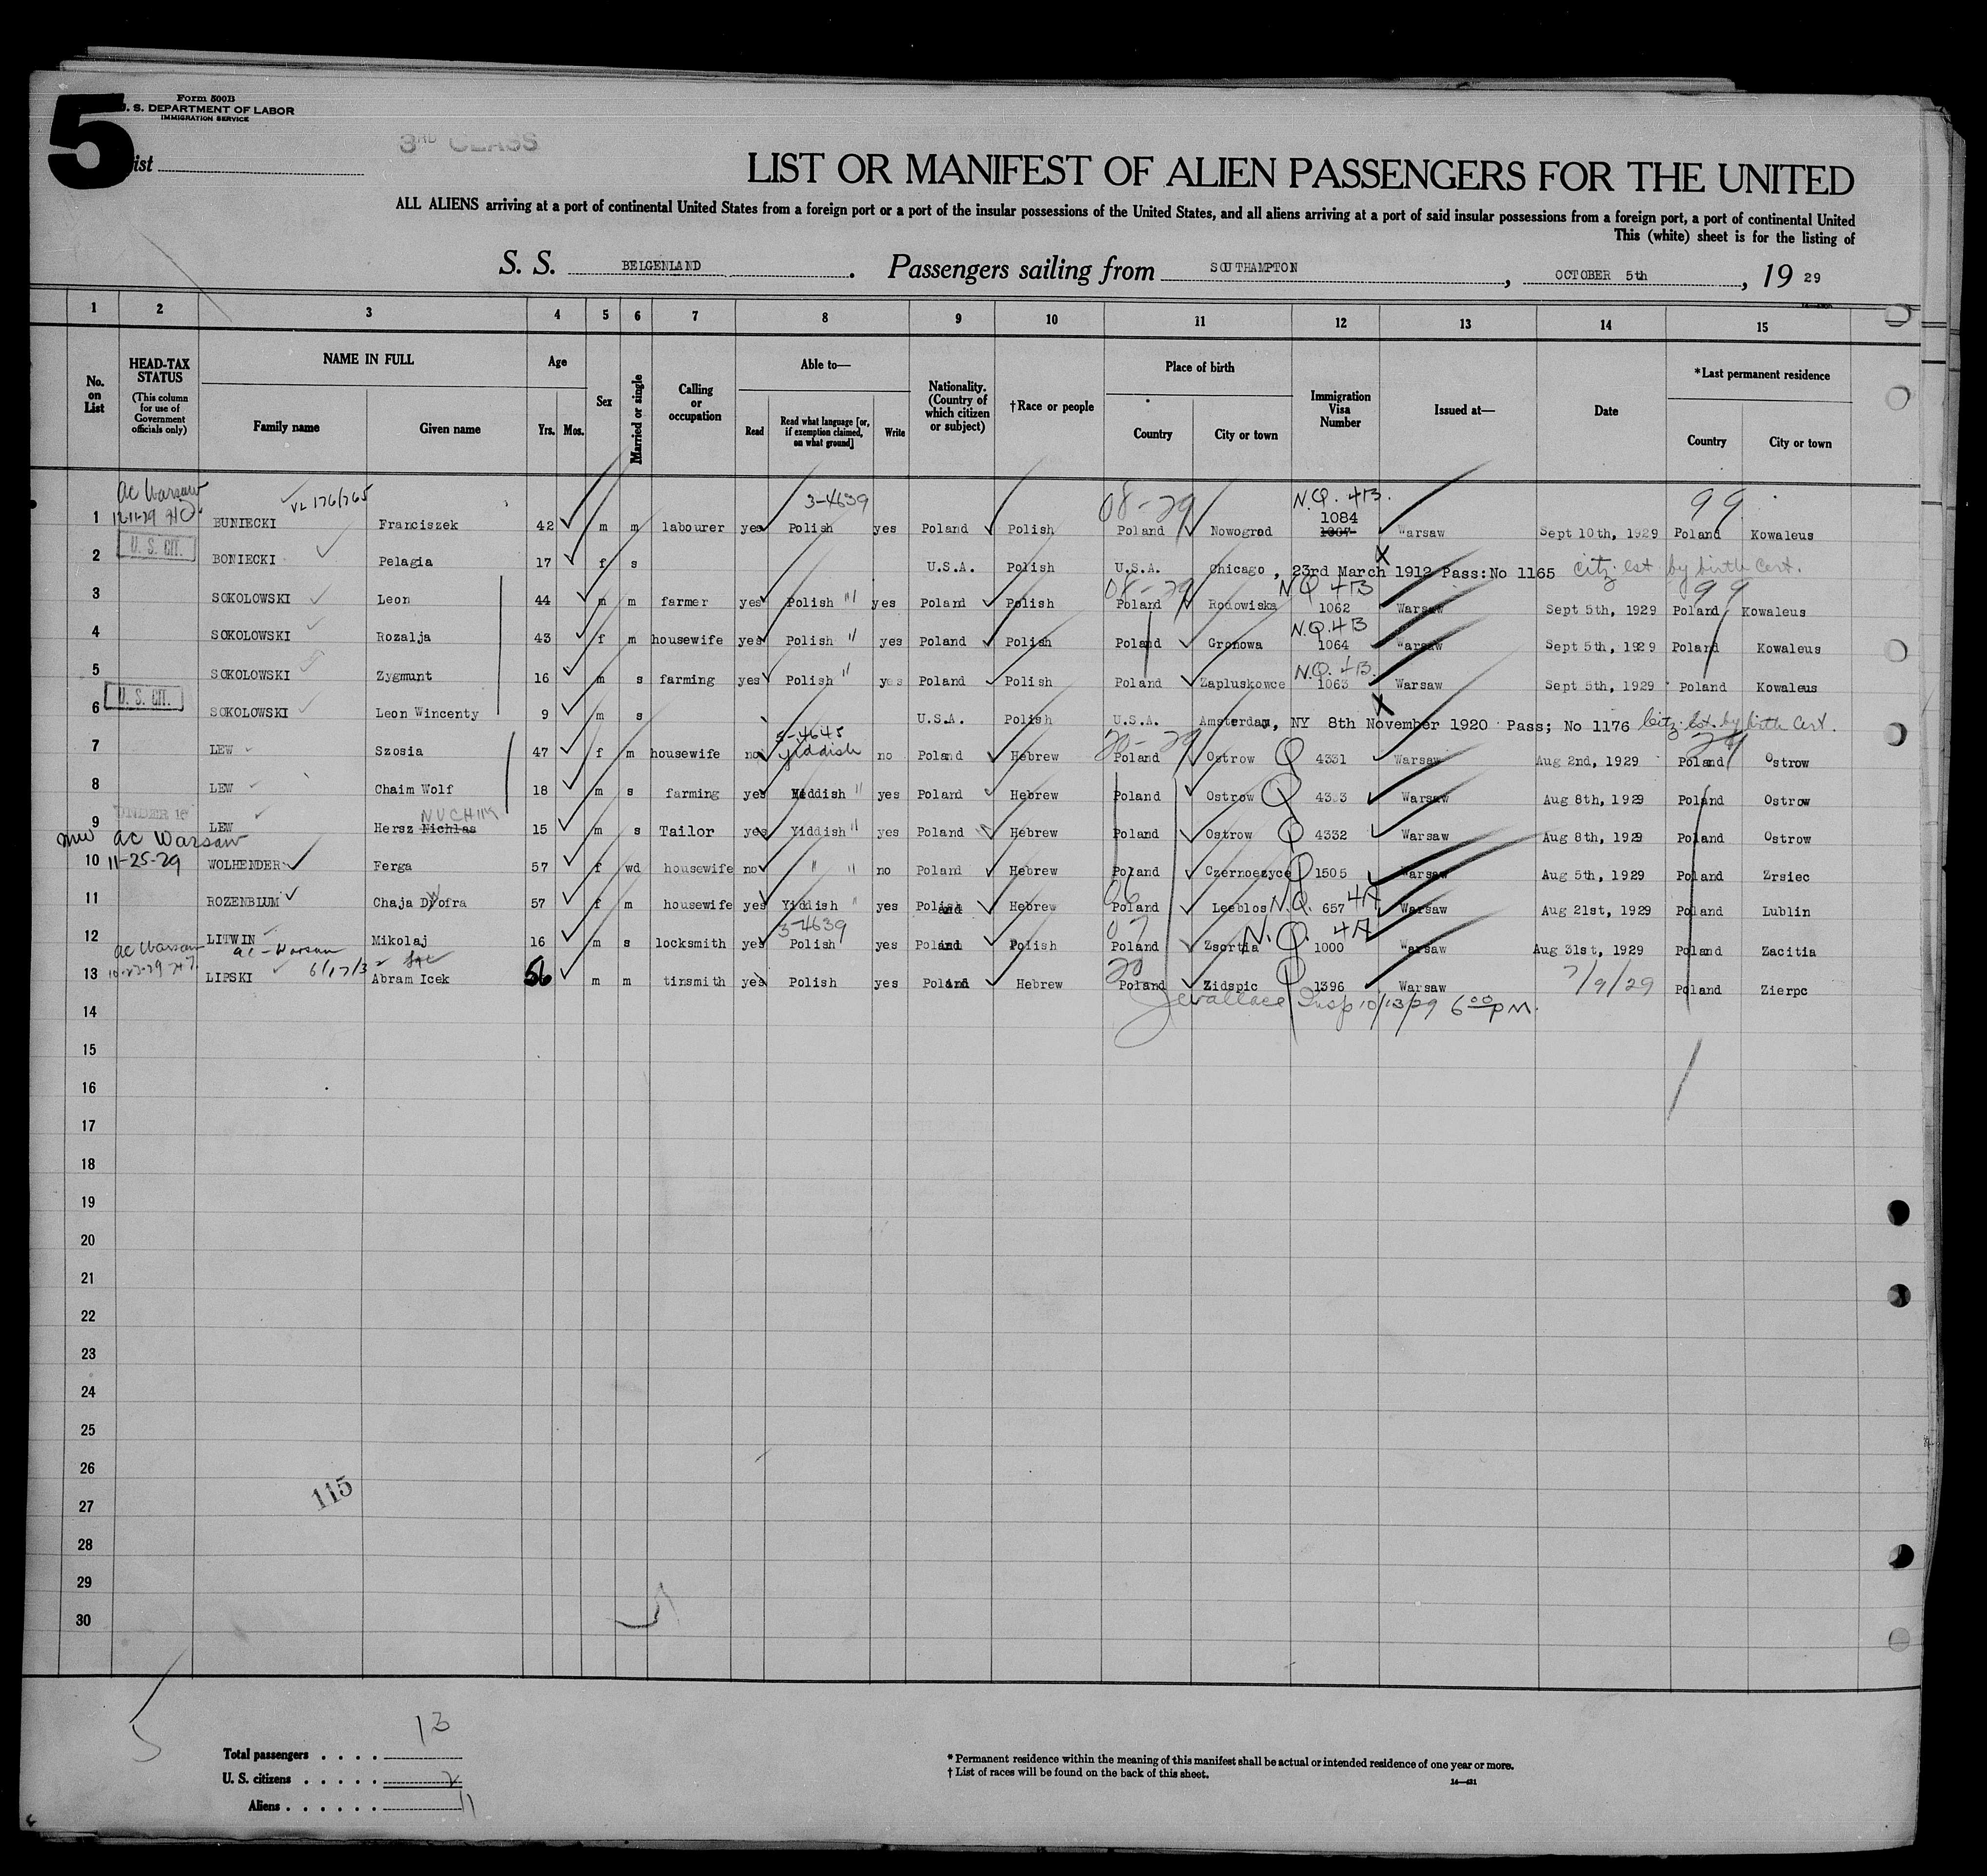 5
Form 500B
U. S. DEPARTMENT OF LABOR
IMMIGRATION SERVICE
ist
3RD CLASS
LIST OR MANIFEST OF ALIEN PASSENGERS FOR THE UNITED
ALL ALIENS arriving at a port of continental United States from a foreign port or a port of the insular possessions of the United States, and all aliens arriving at a port of said insular possessions from a foreign port, a port of continental United
This (white) sheet is for the listing of
S. S. BELGENLAND. Passengers sailing from SOUTHAMPTON, OCTOBER 5th, 19 29
1 2 3 4 5 6 7 8 9 10 11 12 13 14 15
No. on List
HEAD-TAX STATUS
(This column for use of Government officials only)
NAME IN FULL
Family name Given name
Age
Yrs. Mos.
Sex
Married or single
Calling or occupation
Able to—
Read
Read what language [or, if exemption claimed, on what ground]
Write
Nationality. (Country of which citizen or subject)
†Race or people
Place of birth
Country City or town
Immigration Visa Number
Issued at—
Date
*Last permanent residence
Country City or town
ac Warsaw VL 176/765 3-4639 08-29 N.Q. 4B. 99
12-11-29 1084
1 BUNIECKI Franciszek 42 m m labourer yes Polish yes Poland Polish Poland Nowograd Warsaw Sept 10th, 1929 Poland Kowaleus
U. S. CIT.
2 BONIECKI Pelagia 17 f s U.S.A. Polish U.S.A. Chicago, 23rd March 1912 Pass:No 1165 Citz. est by birth Cert.
08-29 N.Q. 4B 99
3 SOKOLOWSKI Leon 44 m m farmer yes Polish " yes Poland Polish Poland Rodowiska 1062 Warsaw Sept 5th, 1929 Poland Kowaleus
N.Q. 4B
4 SOKOLOWSKI Rozalja 43 f m housewife yes Polish " yes Poland Polish Poland Gronowa 1064 Warsaw Sept 5th, 1929 Poland Kowaleus
N.Q. 4B.
5 SOKOLOWSKI Zygmunt 16 m s farming yes Polish " yes Poland Polish Poland Zapluskowce 1063 Warsaw Sept 5th, 1929 Poland Kowaleus
U. S. CIT.
6 SOKOLOWSKI Leon Wincenty 9 m s U.S.A. Polish U.S.A. Amsterdam, NY 8th November 1920 Pass; No 1176 Citz. Est. by birth Cert.
20-29
7 LEW Szosia 47 f m housewife no Yiddish no Poland Hebrew Poland Ostrow Q 4331 Warsaw Aug 2nd, 1929 Poland Ostrow
8 LEW Chaim Wolf 18 m s farming yes Yiddish " yes Poland Hebrew Poland Ostrow Q 4333 Warsaw Aug 8th, 1929 Poland Ostrow
UNDER 16 NUCHIM
9 LEW Hersz Nichlas 15 m s Tailor yes Yiddish " yes Poland Hebrew Poland Ostrow Q 4332 Warsaw Aug 8th, 1929 Poland Ostrow
ac Warsaw
10 11-25-29 WOLHENDER Ferga 57 f wd housewife no " " no Poland Hebrew Poland Czernoezyce Q 1505 Warsaw Aug 5th, 1929 Poland Zrsiec
11 ROZENBLUM Chaja Dwofra 57 f m housewife yes Yiddish " yes Poland Hebrew Poland Leeblos N.Q. 657 4A Warsaw Aug 21st, 1929 Poland Lublin
3-4639 07 N.Q. 4A
12 LITWIN Mikolaj 16 m s locksmith yes Polish yes Poland Polish Poland Zsortia 1000 Warsaw Aug 31st, 1929 Poland Zacitia
ac Warsaw ac - Warsaw
13 LIPSKI Abram Icek 56 m m tinsmith yes Polish yes Poland Hebrew 20 Poland Zidspic Q 1396 Warsaw 7/9/29 Poland Zierpc
JWallace Insp 10/13/29 6 00 PM.
14
15
16
17
18
19
20
21
22
23
24
25
26
27
28
29
30
115
Total passengers . . . . 13
U. S. citizens . . . . . 2
Aliens . . . . . . 11
* Permanent residence within the meaning of this manifest shall be actual or intended residence of one year or more.
† List of races will be found on the back of this sheet.
14—421